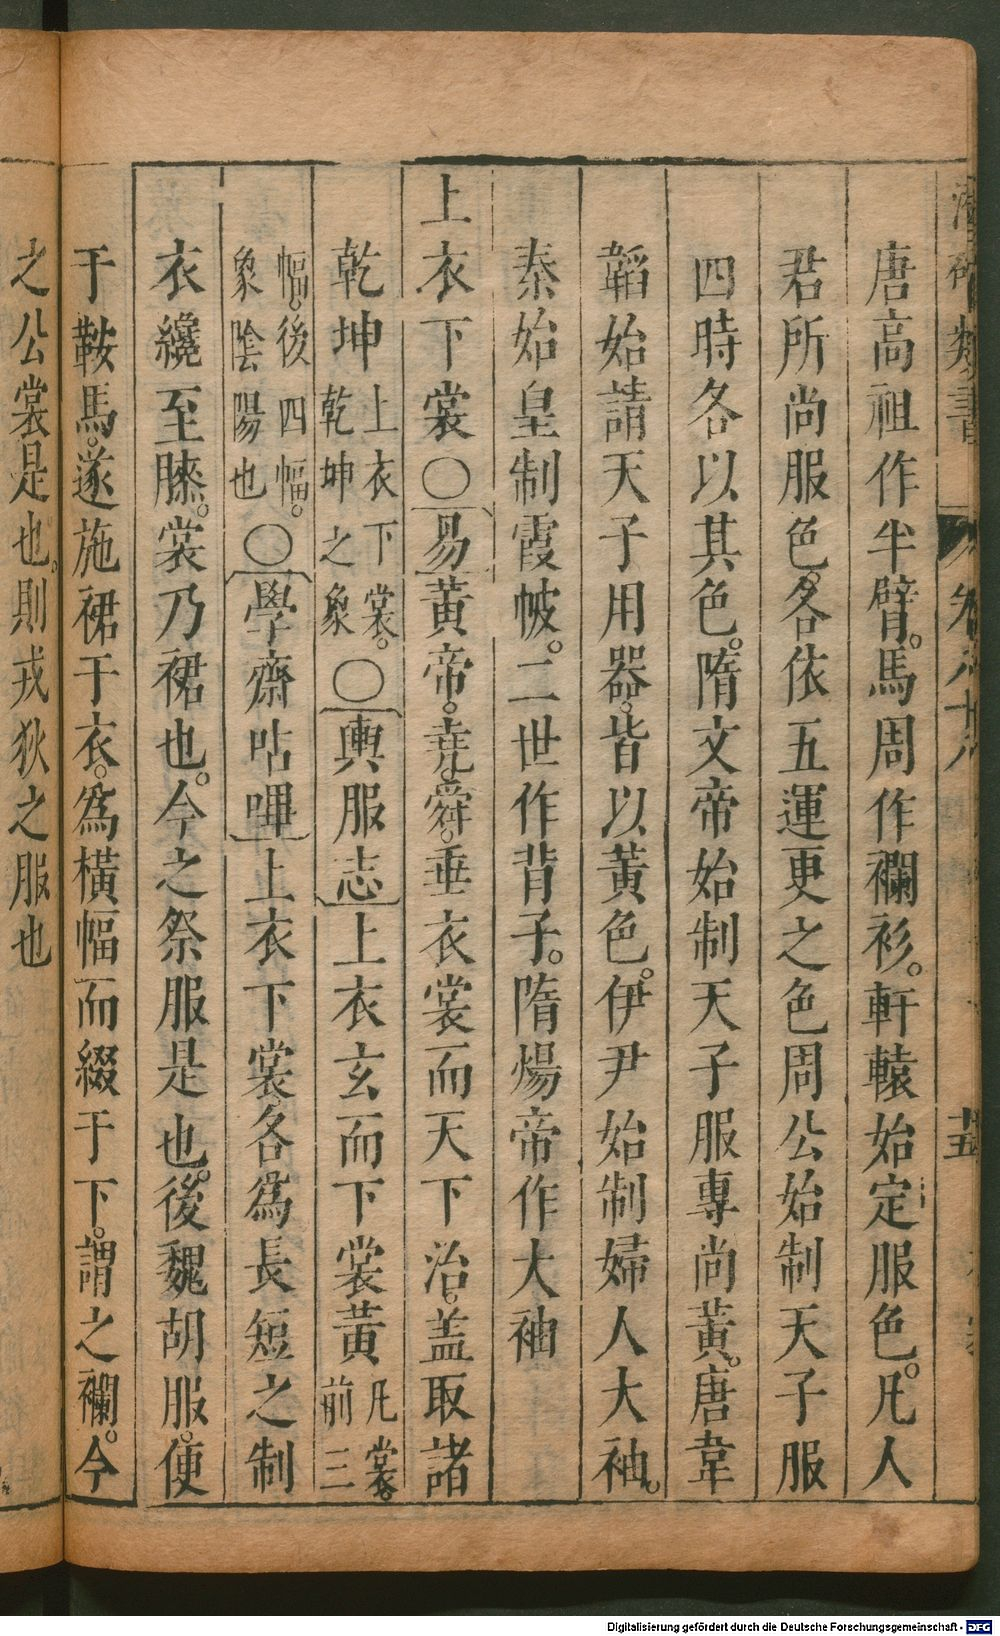 唐高祖作半臂。馬周作襴衫。軒轅始定服色。凡人
君所尚服色。各依五運更之色周公始制天子服
四時各以其色。隋文帝始制天子服專尚黃。唐韋
韜始請天子用器。皆以黃色。伊尹始制婦人大袖。
秦始皇制霞帔。二世作背子。隋煬帝作大袖
上衣下裳○易黃帝。堯。舜。垂衣裳而天下治。盖取諸
乾坤上衣下裳。乾坤之象○輿服志上衣玄而下裳黃凡裳。前三
幅。後四幅。象陰陽也○學齋呫嗶上衣下裳。各爲長短之制
衣纔至膝。裳乃裙也。今之祭服是也。後魏胡服。便
于鞍馬。遂施裙于衣。爲橫幅而綴于下。謂之襴。今
之公裳是也。則戎狄之服也
類書
卷
Digitalisierung gefördert durch die Deutsche Forschungsgemeinschaft - DFG